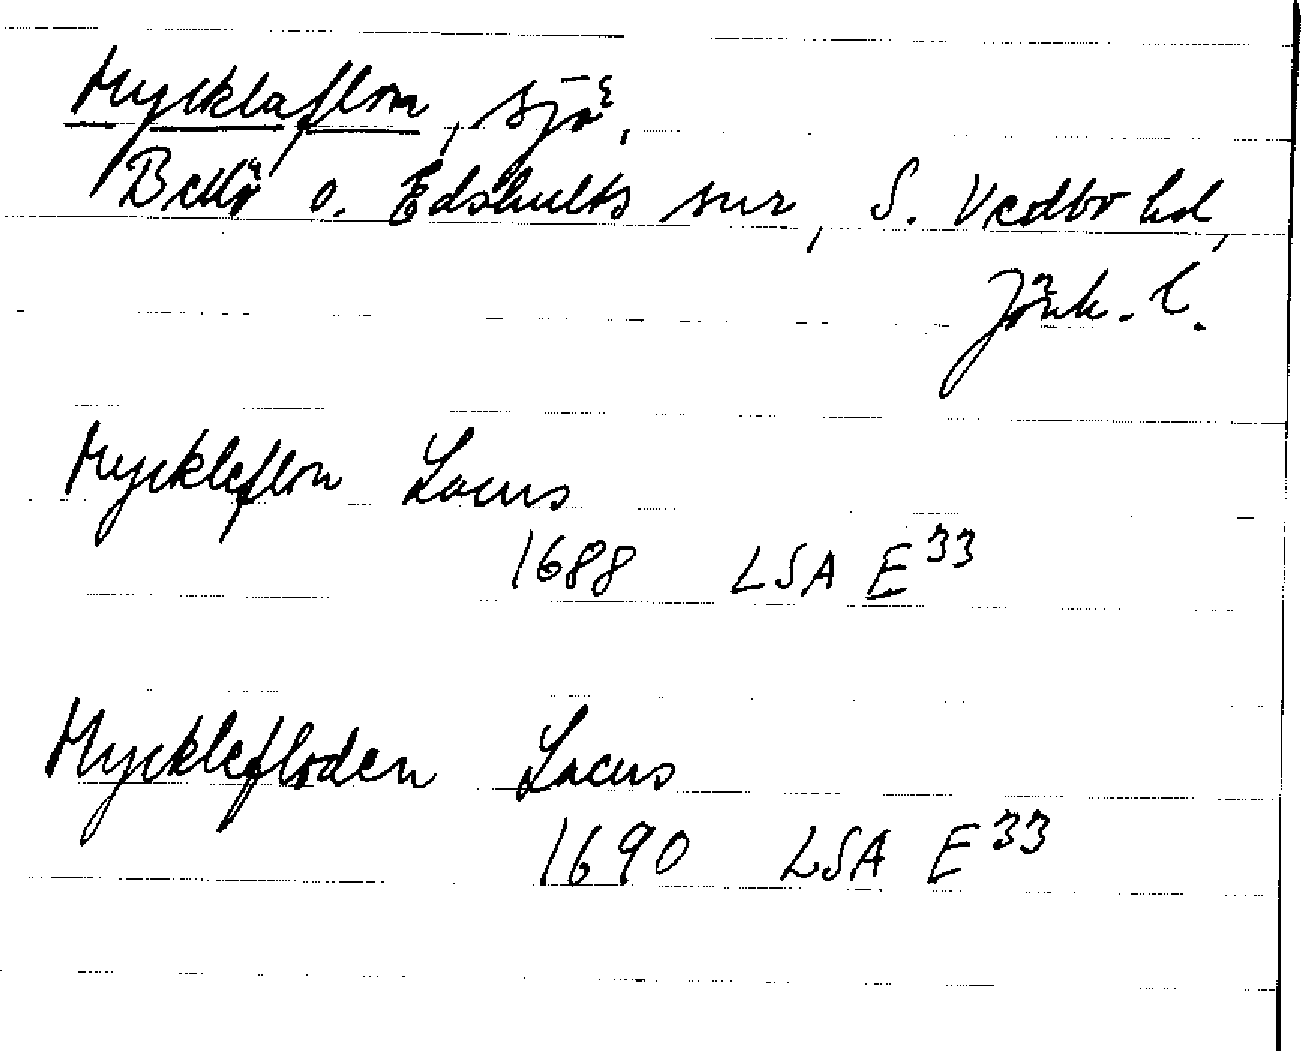 Mycklaflon, sjö,
Bellö o. Edshults snr, S. Vedbo hd,
Jönk. l.
Myckleflon Lacus
1688 LSA E33
Mycklefloden Lacus
1690 LSA E33